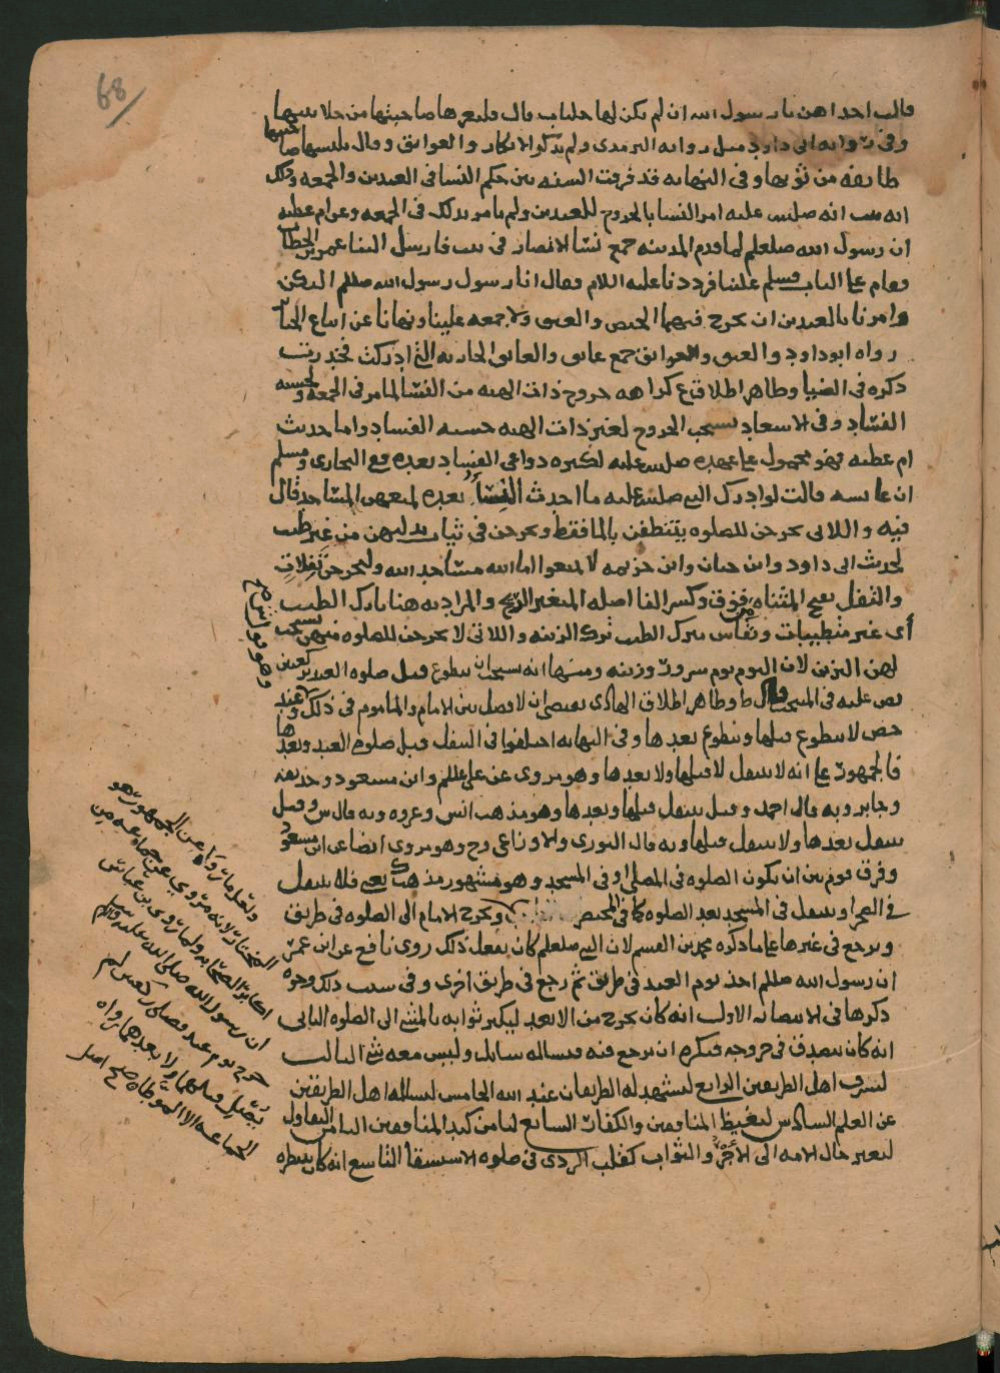 68
قالت احداهن يا رسول الله ان لم يكن لها جلباب قال فليعرها صاحبتها من جلابيبها
وفي رواية ابي داود مثل رواية الترمذي ولم يذكر الابكار والعواتق وقال تلبسها صاحبتها
طايفة من ثوبها وفي النهايه قد فرقت السنه بين حكم النسا في العيدين والجمعه وذلك
انه ثبت انه صلى الله عليه امر النسا بالخروج للعيدين ولم يامر بذلك في الجمعه وعن ام عطيه
ان رسول الله صلعلم لما قدم المدينه جمع نسا الانصار في بيت فارسل الينا عمر بن الخطاب
فقام على الباب فسلم علينا فرددنا عليه السلام فقال انا رسول رسول الله صللم اليكن
وامرنا بالعيدين ان نخرج فيهما الحيض والعتق ولا جمعه علينا ونهانا عن اتباع الجنائز
رواه ابو داود والعتق والعواتق جمع عاتق والعاتق الجاريه التي ادركت فخدرت
ذكره في الضيا وظاهر اطلاق ع كراهه خروج ذات الهيه من النسا لما مر في الجمعه ولخشيه
الفساد وفي الانتصار يستحب الخروج لغير ذات الهيه خشيه الفساد واما حديث
ام عطيه فهو محمول على عهده صلى الله عليه لكثره دواعي الفساد بعده مع البخاري ومسلم
ان عايشه قالت لو ادرك النبي صلى الله عليه ما احدث النسا بعده لمنعهن المساجد قال
فيه واللاتي يخرجن للصلوه يتنظفن بالما فقط ويخرجن في ثياب بذلتهن من غير طيب
لحديث ابي داود وابن حبان وابن خزيمه لا تمنعوا اما الله مساجد الله وليخرجن تفلات
والتفل بفتح المثناه من فوق وكسر الفا اصله المتغير الريح والمراد به هنا تارك الطيب
أي غير متطيبات ونقاس بترك الطيب ترك الزينه واللاتي لا يخرجن للصلوه منهن يستحب
لهن التزين لان اليوم يوم سرور وزينه ومنها انه يستحب ان يتطوع قبل صلوه العيد بركعتين
نص عليه في المنتخب وقال ط وظاهر اطلاق الهادي يقتضي ان لا فصل بين الامام والماموم في ذلك وعند
حص لا يتطوع قبلها ويتطوع بعدها وفي النهايه اختلفوا في التنفل قبل صلوه العيد وبعدها
فالجمهور على انه لا يتنفل لا قبلها ولا بعدها وهو مروي عن علي عللم وابن مسعود وحذيفه
وجابر وبه قال احمد وقيل يتنفل قبلها وبعدها وهو مذهب انس وعروه وبه قال ش وقيل
يتنفل بعدها ولا يتنفل قبلها وبه قال الثوري والاوزاعي وح وهو مروي ايضا عن ابن مسعود
وفرق قوم بين ان تكون الصلوه في المصلى او في المسجد وهو مشهور مذهب ك يعني فلا يتنفل
في الصحرا ويتنفل في المسجد بعد الصلوه كما في المختصر ويخرج الامام الى الصلوه في طريق
ويرجع في غيرها على ما ذكره محمد بن القسم لان النبي صلعلم كان يفعل ذلك روى نافع عن ابن عمر
ان رسول الله صللم اخذ يوم العيد في طريق ثم رجع في طريق اخرى وفي سبب ذلك وجوه
ذكرها في الانتصار الاول انه كان يخرج من الابعد ليكثر ثوابه بالمشي الى الصلوه الثاني
انه كان يتصدق في خروجه فيكره ان يرجع فيه فيساله سائل وليس معه شي الثالث
لشرف اهل الطريقين الرابع لتشهد له الطريقان عند الله الخامس ليساله اهل الطريقين
عن العلم السادس ليغيظ المنافقين والكفار السابع ليامن كيد المنافقين الثامن التفاول
لتغير حال الامه الى الاجر والثواب كقلب الردى في صلوه الاستسقا التاسع انه كان ينتظره
وهو قول ش مع
ولعل ما رواه عن الجمهور هو
المختار لانه مروي عن جماعه من
اكابر الصحابه ولما روى بن عباس
ان رسول الله صلى الله عليه وسلم
خرج يوم عيد فصلى ركعتين لم
يتنفل قبلهما ولا بعدهما رواه
الجماعه الا الموطا صح اصل